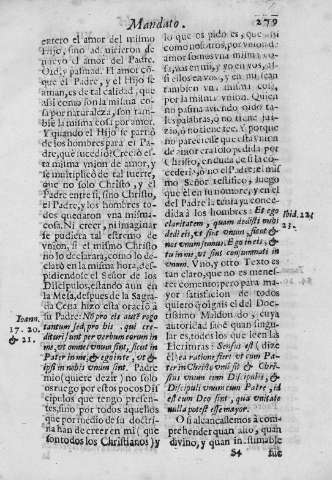 Mandato.
279
entero el amor del mismo
Hijo, sino ad uirieron de
nuevo el amor del Padre.
Oid, y pasmad. El amor cõ-
que el Padre, y el Hijo se
aman, es de tal calidad, que
asi como son la misma co-
sa por naturaleza, son tan-
bie la misma cosa por amor.
Y quando el Hijo se partiò
de los hombres para el Pa-
dre, que sucediò? Creciò es-
ta misma vnion de amor, y
se multiplicò de tal suerte,
que no solo Christo, y el
Padre entre si, sino Christo,
el Padre, y los hombres to-
dos quedaron vna misma
cosa. Ni creer, ni imaginar
se pudiera tal estremo de
vnion, si el mismo Christo
no lo declarara, como lo de
clarò en la misma hora, des-
pidiendose el Señor de los
Dicipulos, estando aun en
la Mesa, despues de la Sagra-
da Cena hizo esta oraciõ à
su Padre: Nõ pro eis autẽ rogo
tantum sed pro his qui cre-
dituri sunt per verbum eorum in
me, vt omnes vnum sint, sicut tu
Pater in me, & ego in te, vt &
ipsi in nobis vnum sint. Padre
mio (quiere dezir) no solo
os ruego por estos pocos Dis
cipulos que tengo presen-
tes, sino por todos aquellos
que por medio de su doctri-
na han de creer en mi (que
son todos los Christianos) y
Ioann.
17. 20.
& 21.
lo que os pido es, que asi
como nosotros, por vnion de
amor somos vna misma vo-
s, vos en mi, y yo en vos, as-
si ellos en vos, y en mi sean
tambien vna misma cosa,
por la misma vnion. Quien
no pasma oyendo oìdo ta-
les palabras, ò no tiene juy-
zio, ò no tiene fee. Y porque
no pareciesse que esta vnion
de amor era solo pedida por
Christo, en duda de si la co-
cederia, ò no el Padre: el mis
mo Señor testificò, luego
que el en su nombre, y en el
del Padre la tenia ya conce-
dida à los hombres: Et ego
claritatem, quam dedisti mihi
dedi eis, vt sint vnum, sicut &
nos vnum sumus. Ego in eis, &
tu in me, vt sint consummati in
vnum. Vno, y otro Texto es
tan claro, que no es menes-
ter comento; pero para ma-
yor satisfacion de todos
quiero q̃ oigais el del Doc-
tissimo Maldonado, cuya
autoridad sabe quan singu-
lar es, todos los que leen las
Escrituras: Sensus est (dize
el) ea ratione fieri vt cum Pa-
ter in Christo vnũ sit & Chris-
tus vnum cum Discipulis, &
Discipuli vnum cum Patre, id
est cum Deo sint, qua vnitate
nulla potest esse mayor.
O si alcançassemos à com-
prehender quan alto, quan
divino, y quan inestimable
Ibid. 22.
23.
S4
fue